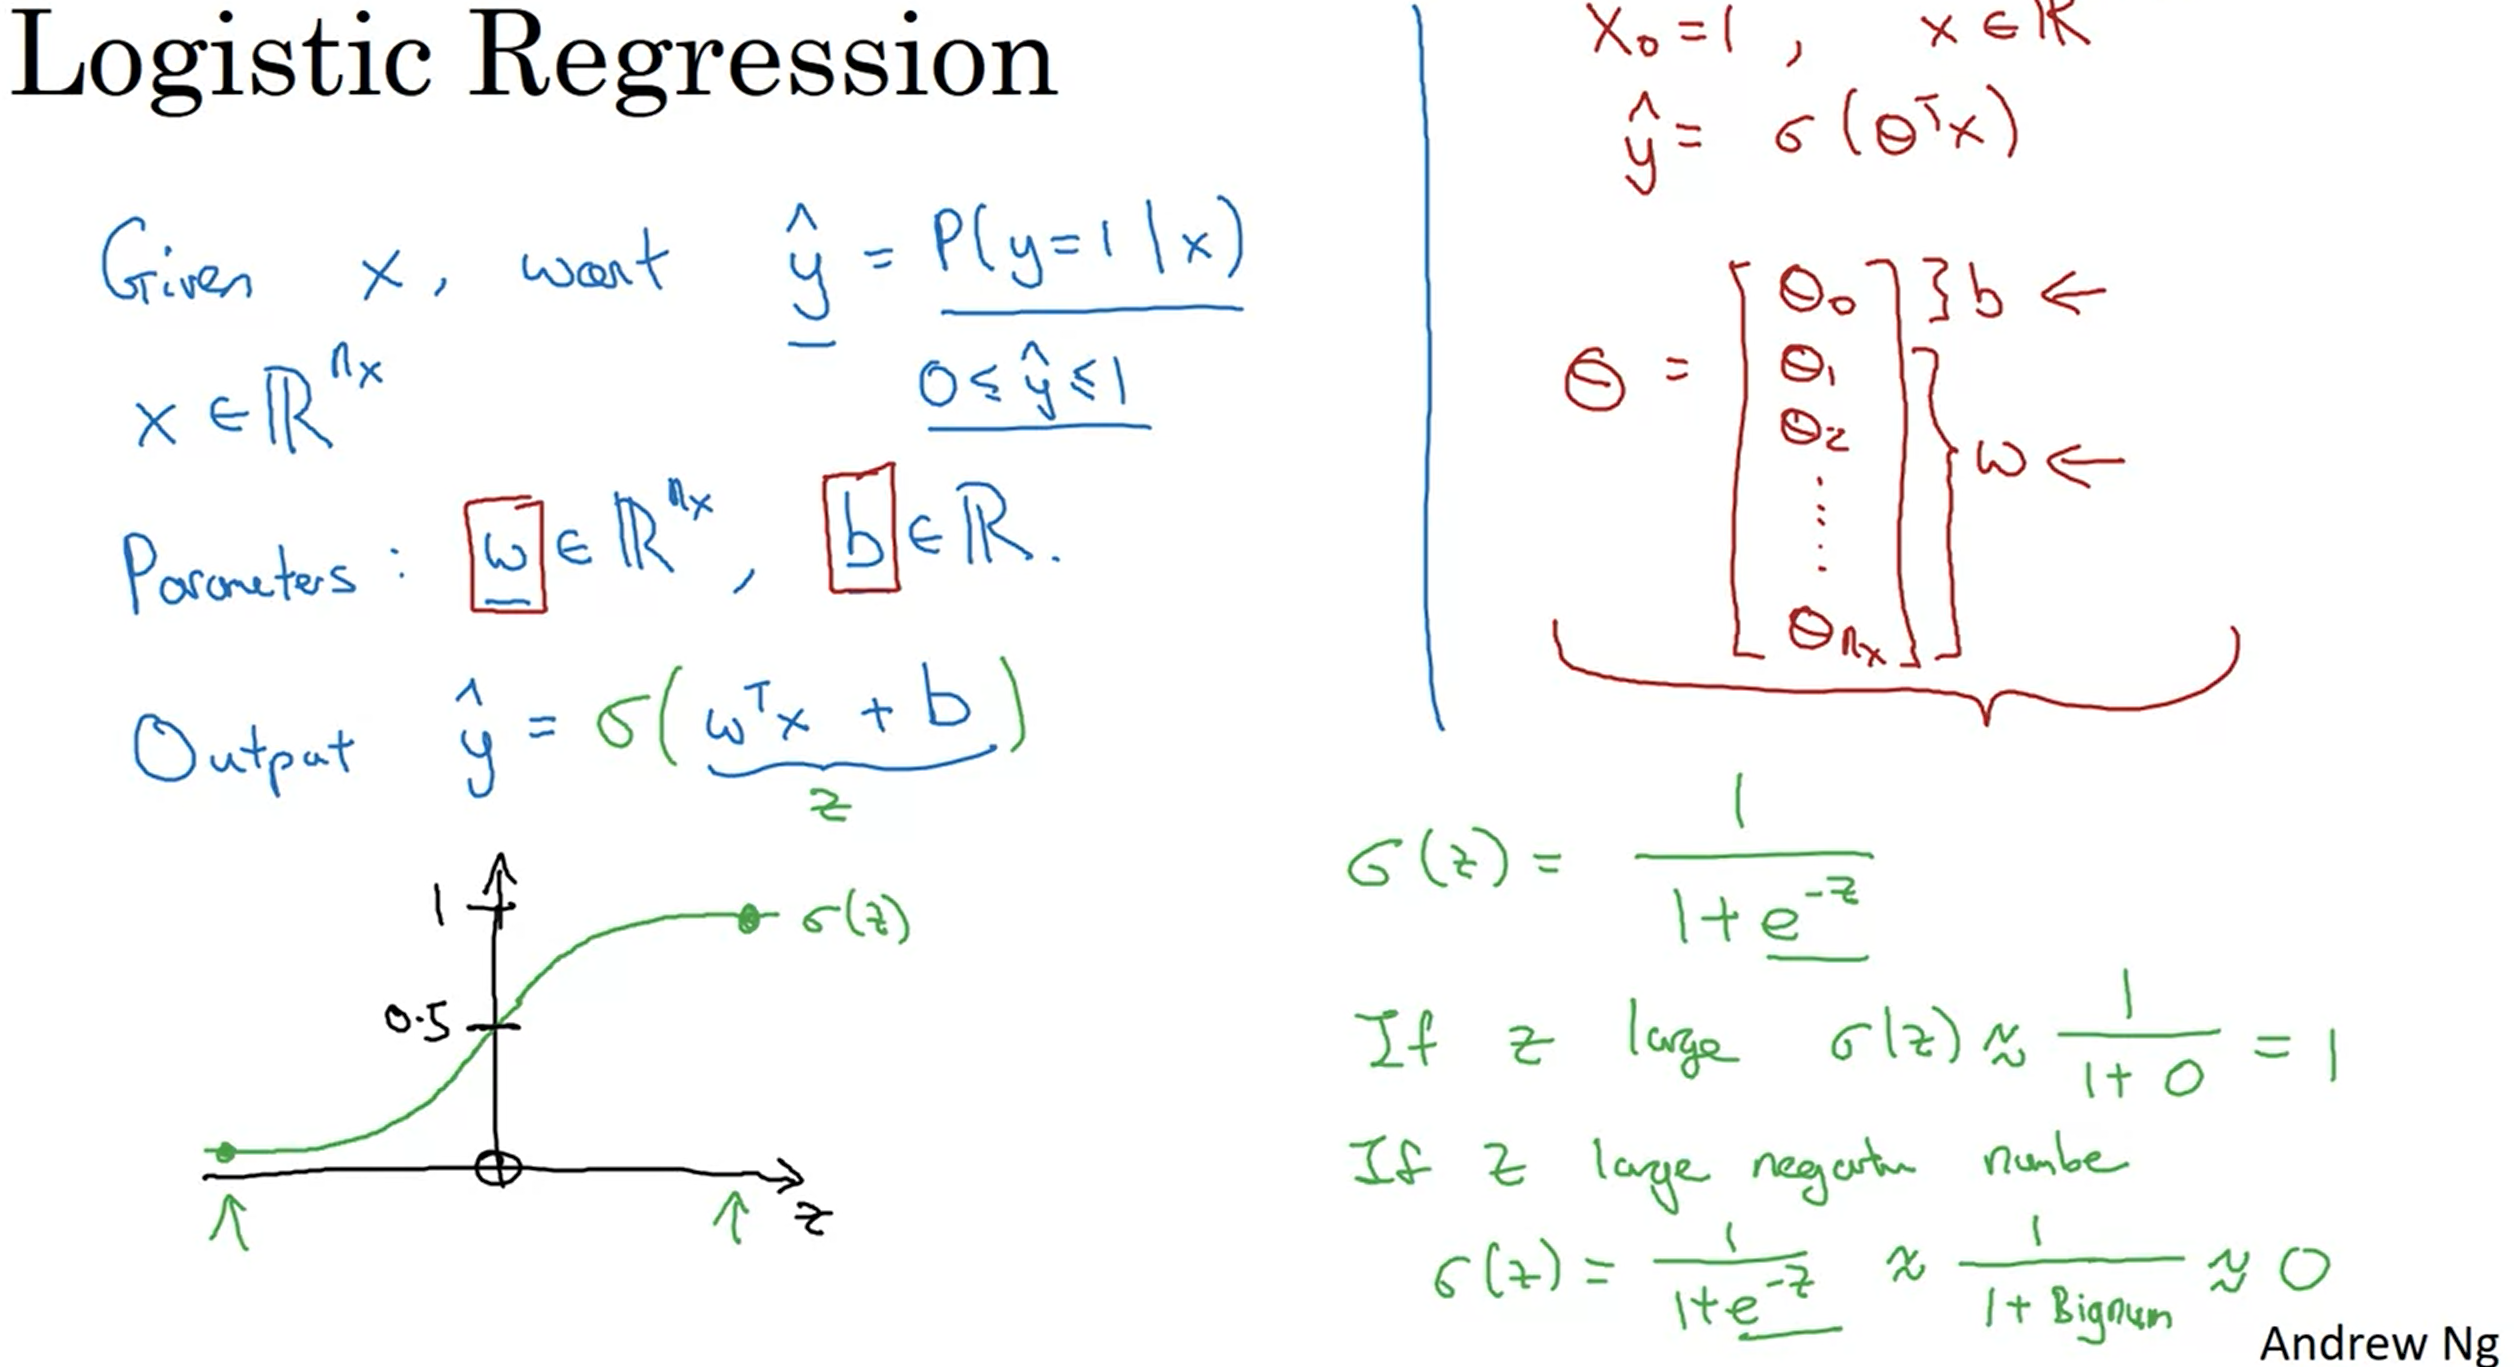 Logistic Regression
Given x, want ŷ = P(y=1|x)
x ∈ ℝ^{n_x}
0 ≤ ŷ ≤ 1
Parameters: w ∈ ℝ^{n_x}, b ∈ ℝ.
Output ŷ = σ(w^T x + b)
z
1
σ(z)
0.5
z
x₀ = 1, x ∈ ℝ
ŷ = σ(θ^T x)
θ = [θ₀ θ₁ θ₂ ⋮ θ_{n_x}]
} b ←
} w ←
σ(z) = 1/(1+e^{-z})
If z large σ(z) ≈ 1/(1+0) = 1
If z large negative numbe
σ(z) = 1/(1+e^{-z}) ≈ 1/(1+Bignum) ≈ 0
Andrew Ng